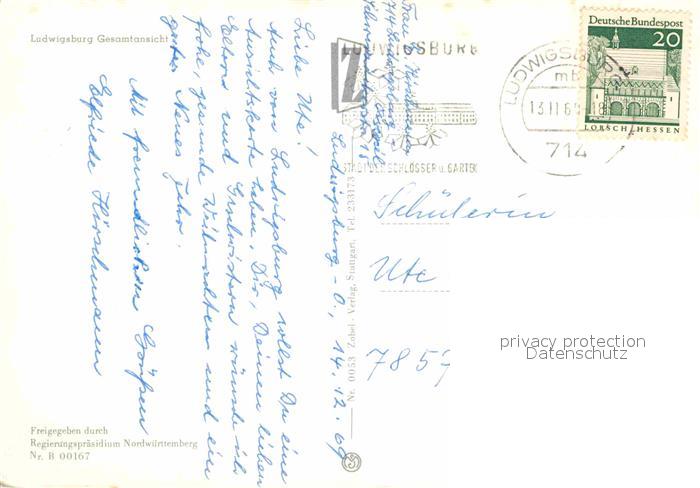 Ludwigsburg Gesamtansicht
Ludwigsburg-O., 14.12.69
Liebe Ute!
Auch von Ludwigsburg sollst Du eine
Ansichtskarte haben. Dir, Deinen lieben
Eltern und Geschwistern wünsche ich
frohe, gesunde Weihnachten und ein
gutes Neues Jahr.
Mit freundlichen Grüßen
Elfriede Hörschmann
Freigegeben durch
Regierungspräsidium Nordwürttemberg
Nr. B 00167
Nr. 0053 Zobel-Verlag, Stuttgart, Tel. 233173
Frau
714 Ludwigsburg
LUDWIGSBURG
Z
STADT DER SCHLÖSSER u. GÄRTEN
LUDWIGSBURG
mb
714
Deutsche Bundespost
20
LORSCH/HESSEN
Schülerin
Ute
7857
privacy protection
Datenschutz